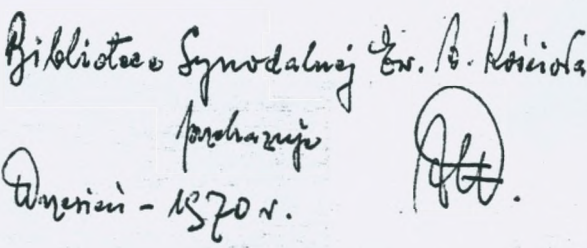 Bibliotece Synodalnej Ew. A. Kościoła
przekazuję
Wrzesień - 1970 r.